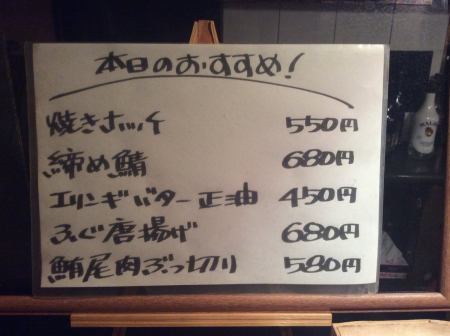 本日のおすすめ!
焼きホッケ 550円
締め鯖 680円
エリンギバター正油 450円
ふぐ唐揚げ 680円
鮪尾肉ぶっ切り 580円